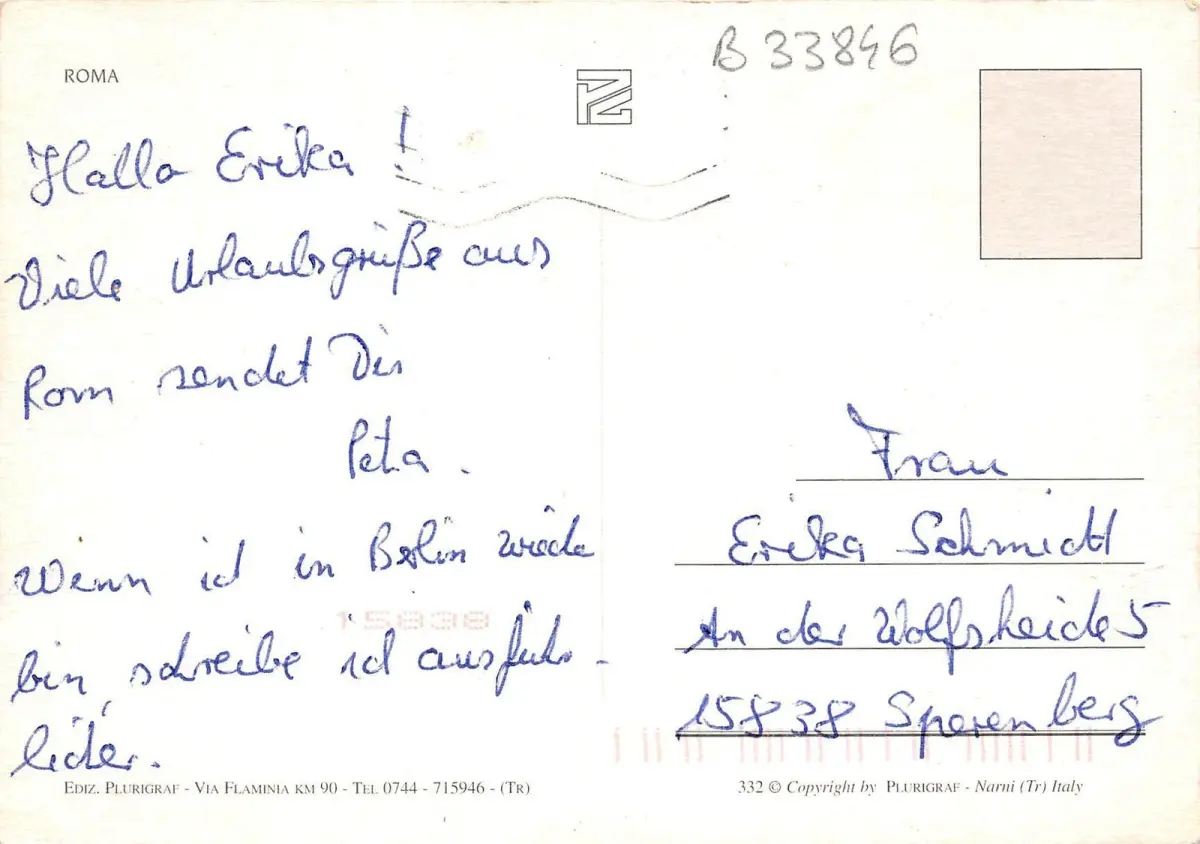 B 33846
ROMA
Hallo Erika !
Viele Urlaubsgrüße aus
Rom sendet Dir
Peta.
Wenn ich in Berlin wieder
bin, schreibe ich ausführ-
licher.
15838
Frau
Erika Schmidt
An der Wolfsheide 5
15838 Sperenberg
EDIZ. PLURIGRAF - VIA FLAMINIA KM 90 - TEL 0744 - 715946 - (TR)
332 © Copyright by PLURIGRAF - Narni (Tr) Italy